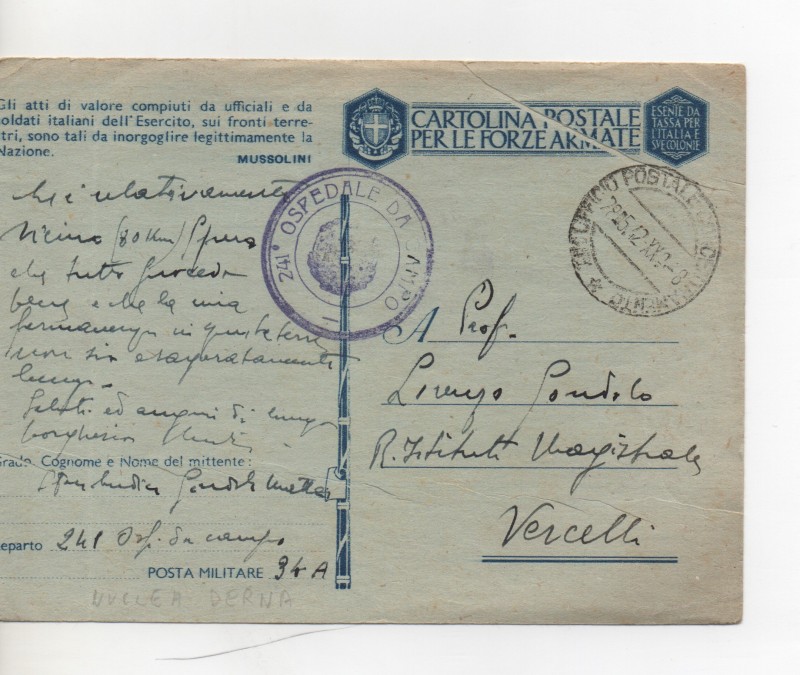 Gli atti di valore compiuti da ufficiali e da
soldati italiani dell'Esercito, sui fronti terre-
stri, sono tali da inorgoglire legittimamente la
Nazione.
MUSSOLINI
CARTOLINA POSTALE
PER LE FORZE ARMATE
ESENTE DA
TASSA PER
L'ITALIA E
SVE COLONIE
relativamente
vicino (80 Km) Spero
che tutto proceda
bene e che la mia
permanenza in queste terre
non sia esageratamente
lunga.
Saluti ed auguri di
241° OSPEDALE DA CAMPO
UFFICIO POSTALE
28.5.42.XX
A Prof.
Lorenzo Gondolo
R. Istituto Magistrale
Vercelli
Grado, Cognome e Nome del mittente:
Reparto 241 Osp. da campo
POSTA MILITARE 34 A
NUCLEA DERNA